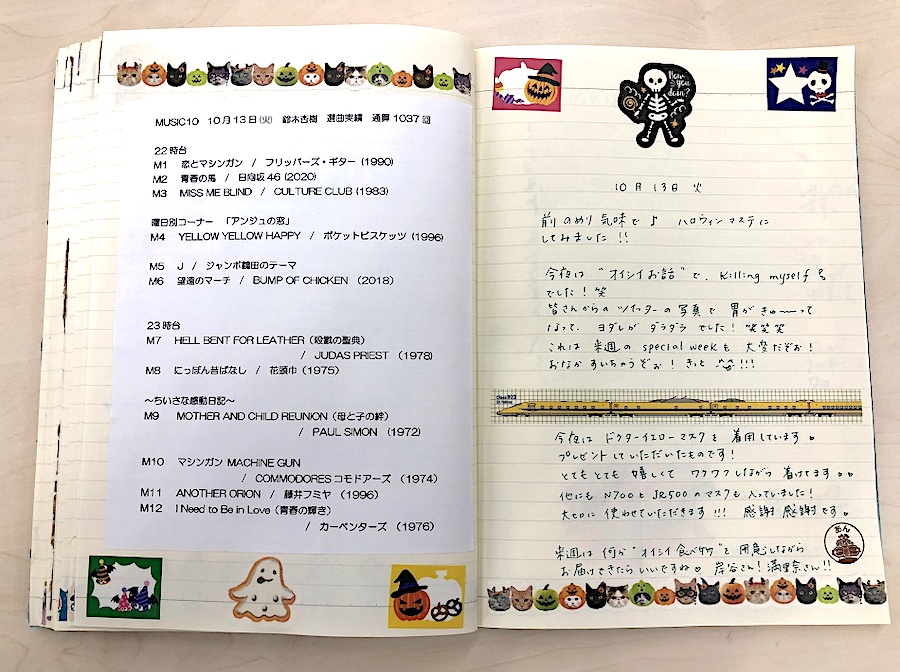 MUSIC10 10月13日(火) 鈴木杏樹 選曲実績 通算1037回
22時台
M1 恋とマシンガン / フリッパーズ・ギター (1990)
M2 青春の馬 / 日向坂46 (2020)
M3 MISS ME BLIND / CULTURE CLUB (1983)
曜日別コーナー 「アンジュの窓」
M4 YELLOW YELLOW HAPPY / ポケットビスケッツ (1996)
M5 J / ジャンボ鶴田のテーマ
M6 望遠のマーチ / BUMP OF CHICKEN (2018)
23時台
M7 HELL BENT FOR LEATHER (殺戮の聖典)
/ JUDAS PRIEST (1978)
M8 にっぽん昔ばなし / 花頭巾 (1975)
〜ちいさな感動日記〜
M9 MOTHER AND CHILD REUNION (母と子の絆)
/ PAUL SIMON (1972)
M10 マシンガン MACHINE GUN
/ COMMODORES コモドアーズ (1974)
M11 ANOTHER ORION / 藤井フミヤ (1996)
M12 I Need to Be in Love (青春の輝き)
/ カーペンターズ (1976)
How you doin?
10月13日 火
前のめり気味で♪ ハロウィンマステに
してみました!!
今夜は "オイシイお話" で、Killing myself
でした!笑
皆さんからのツイッターの写真で 胃がきゅ〜〜って
なって、ヨダレが ダラダラ でした! 笑笑笑
これは 来週の special weekも 大変だぞぉ!
おなか すいちゃうぞぉ! きっと !!!
Class 923
Dr.Yellow
今夜は ドクターイエローマスクを 着用しています。
プレゼントしていただいたものです!
とてもとても 嬉しくて ワクワクしながら 着けてます。。
他にも N700と JR500のマスクも入っていました!
大切に 使わせていただきます!!! 感謝 感謝です。
あん
来週は 何か "オイシイ食べ物" を 用意しながら
お届けできたらいいですね。 岸谷さん!満里奈さん!!